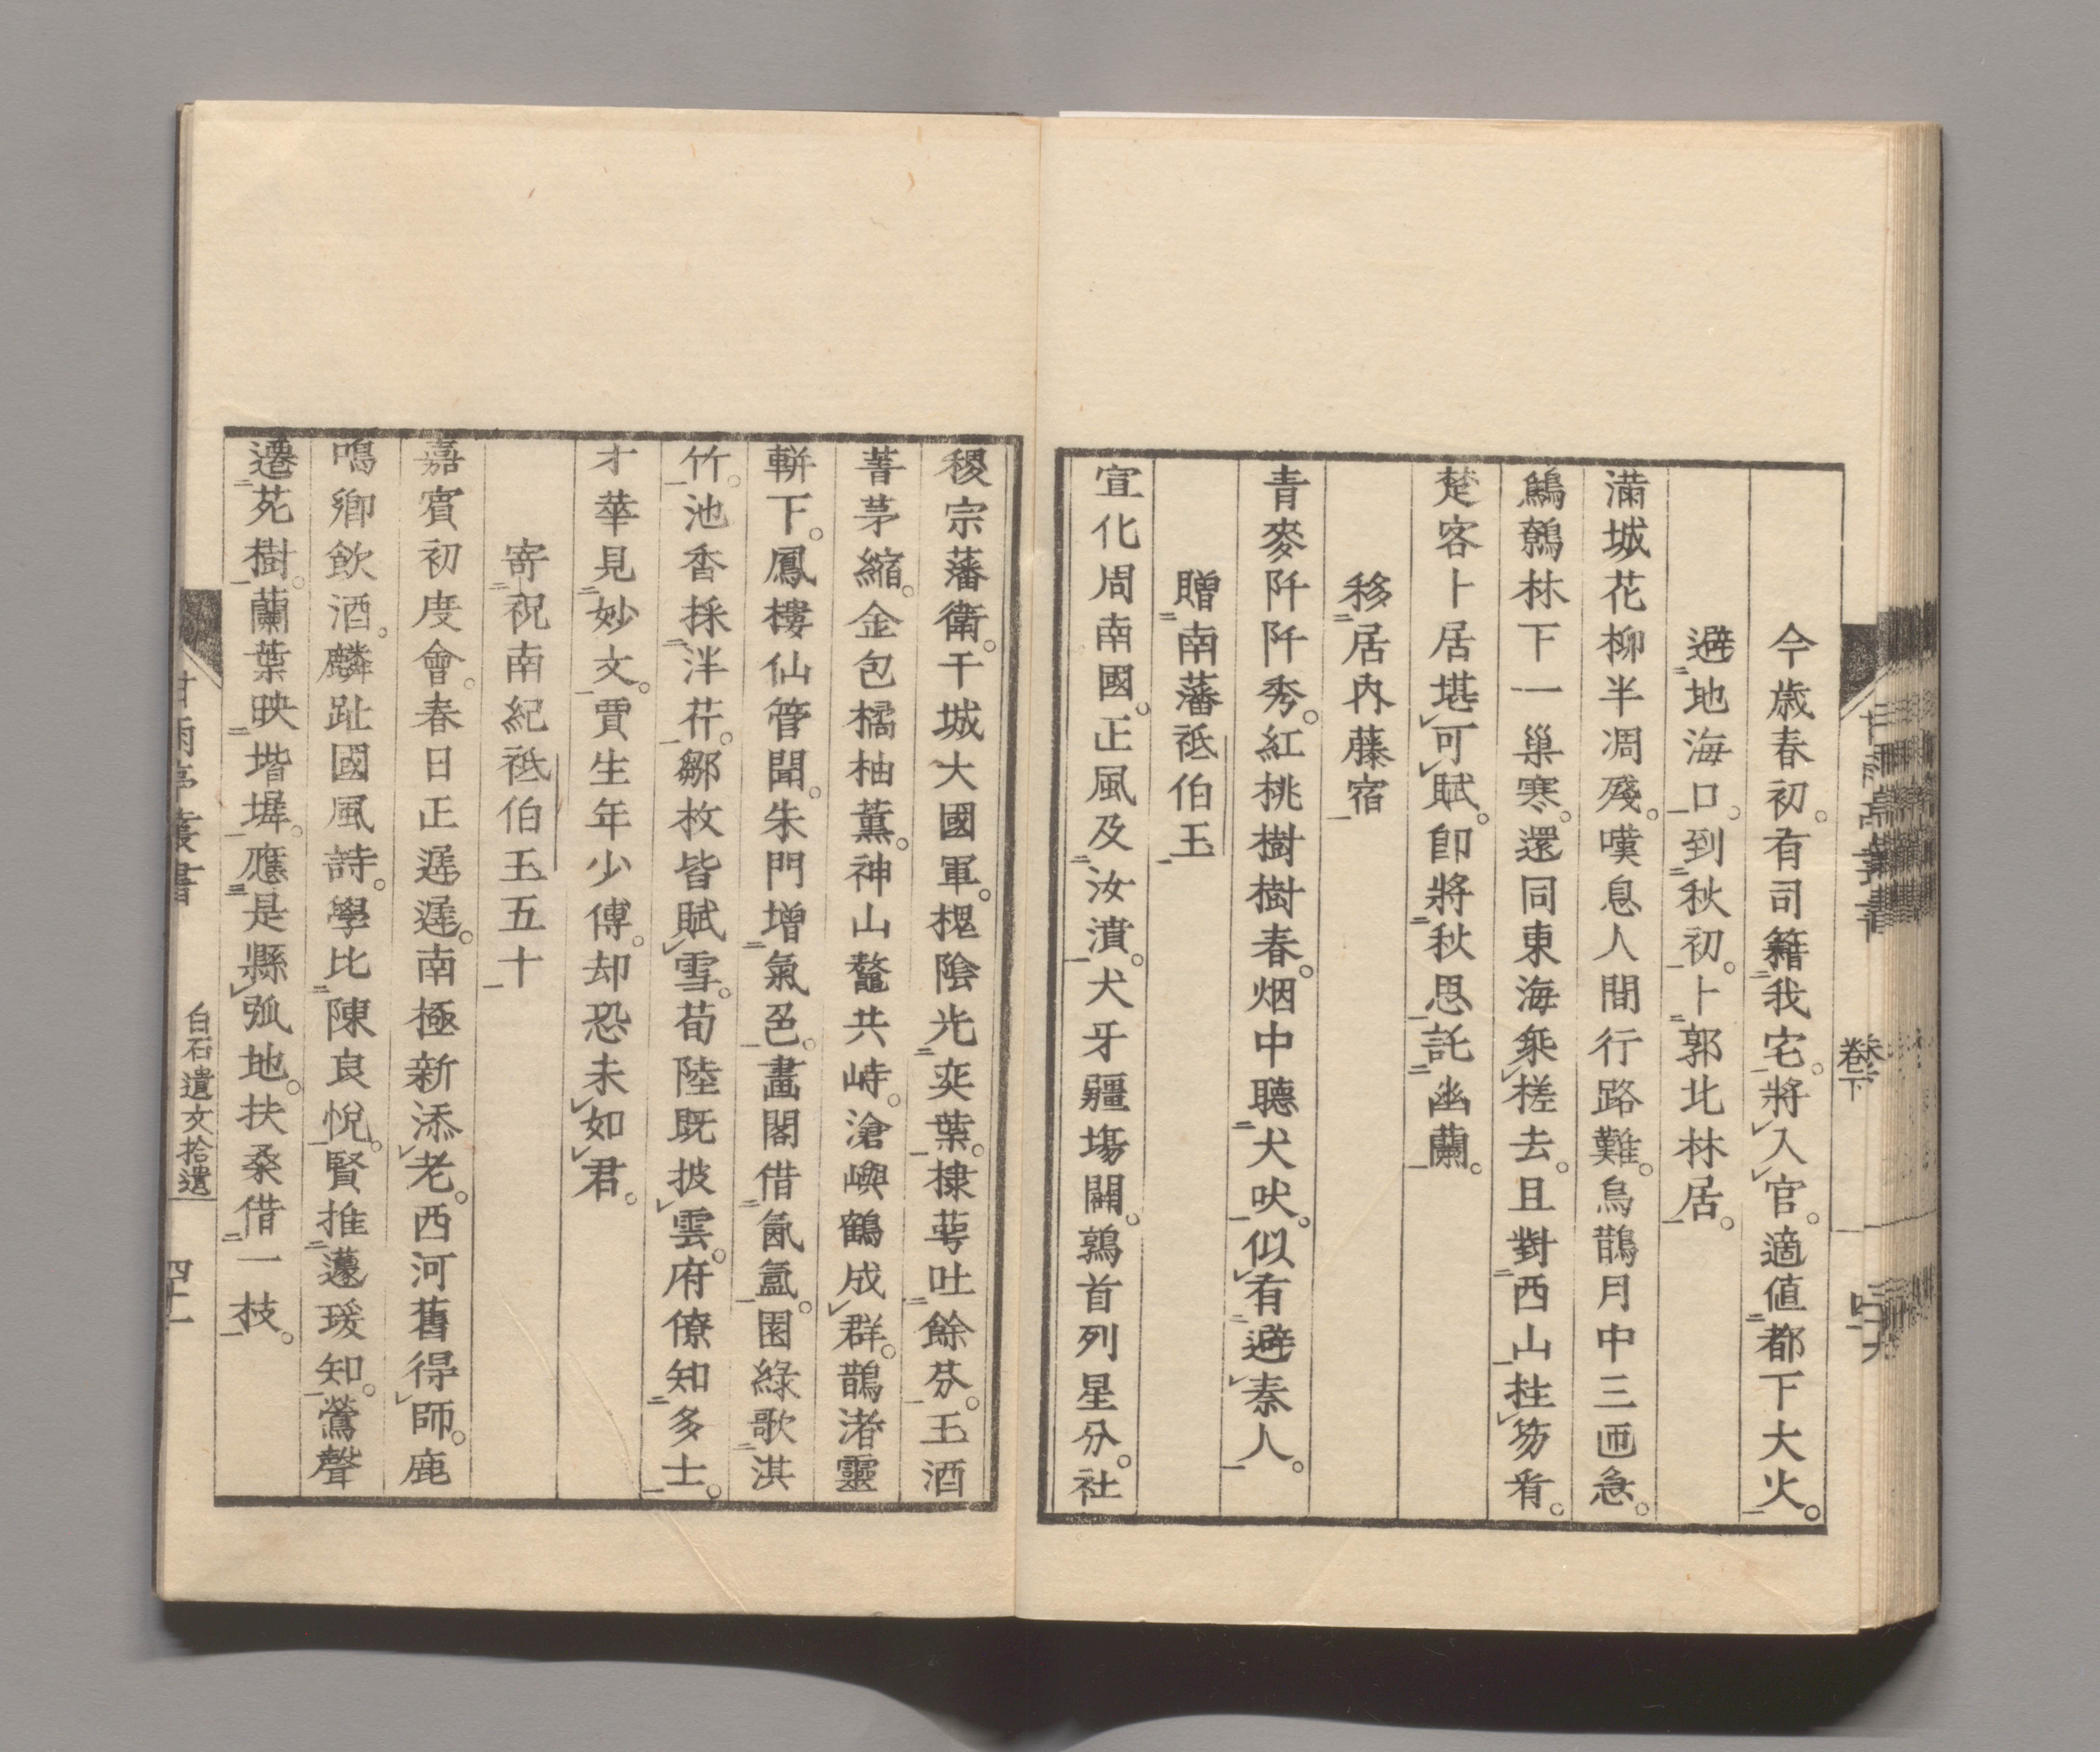 今歳春初。有司籍我宅。將入官。適値都下大火。
避地海口。到秋初。卜郭北林居。
滿城花柳半凋殘。嘆息人間行路難。烏鵲月中三匝急。
鷦鷯林下一巢寒。還同東海乘槎去。且對西山拄笏看。
楚客卜居堪可賦。卽將秋思託幽蘭。
移居内藤宿
青麥阡阡秀。紅桃樹樹春。烟中聽犬吠。似有避秦人。
贈南藩祗伯玉
宣化周南國。正風及汝濆。犬牙疆塲闢。鶉首列星分。社
稷宗藩衛。干城大國軍。槐陰光奕葉。棣萼吐餘芬。王酒
菁茅縮。金包橘柚薰。神山鼇共峙。滄嶼鶴成群。鵲渚靈
軿下。鳳樓仙管聞。朱門增氣色。畵閣借氤氳。園綠歌淇
竹。池香採泮芹。鄒枚皆賦雪。荀陸既披雲。府僚知多士。
才華見妙文。賈生年少傅。却恐未如君。
寄祝南紀祗伯玉五十
嘉賓初度會。春日正遲遲。南極新添老。西河舊得師。鹿
鳴鄉飲酒。麟趾國風詩。學比陳良悅。賢推蘧瑗知。鶯聲
遷苑樹。蘭葉映堦墀。應是縣弧地。扶桑借一枝。
甘雨亭叢書
白石遺文拾遺
四十一
卷下